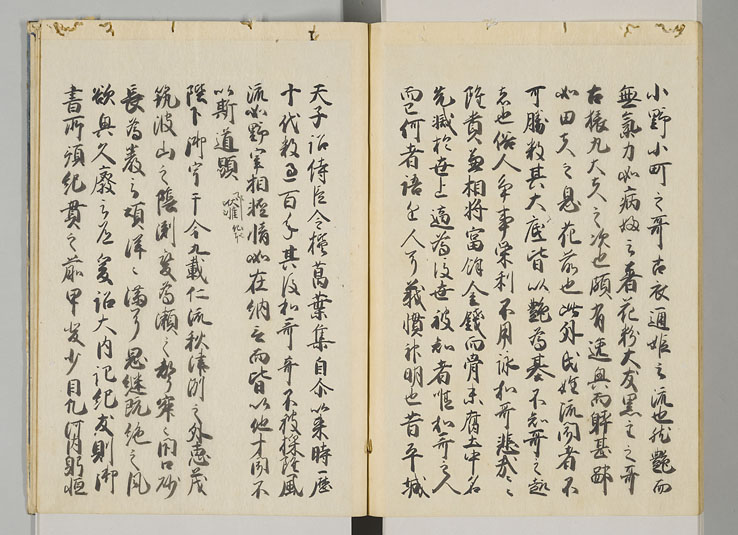 小野小町之哥古衣通姫之流也然艶而
無氣力如病婦之著花粉大友黒主之哥
古猿丸大夫之次也頗有逸興而躰甚鄙
如田夫之息花前也此外氏姓流聞者不
可勝数其大底皆以艶為基不知哥之趣
者也俗人争事栄利不用詠和哥悲哉〻
雖貴兼相将富餘金銭而骨未腐土中名
先滅於世上適為後世被知者唯和哥之人
而已何者語近人耳義慣神明也昔平城
天子詔侍臣令撰萬葉集自介以来時歴
十代数過百年其後和哥弃不被採雖風
流如野宰相軽情如在納言而皆以他才聞不
以斯道顕
陛下御宇于今九載仁流秋津洲之外恵茂
筑波山之陰渕変為瀬之声寂〻閇口砂
長為巌之頌洋〻満耳思継既絶之風
欲興久廃之道爰詔大内記紀友則御
書所預紀貫之前甲斐少目凡河内躬恒